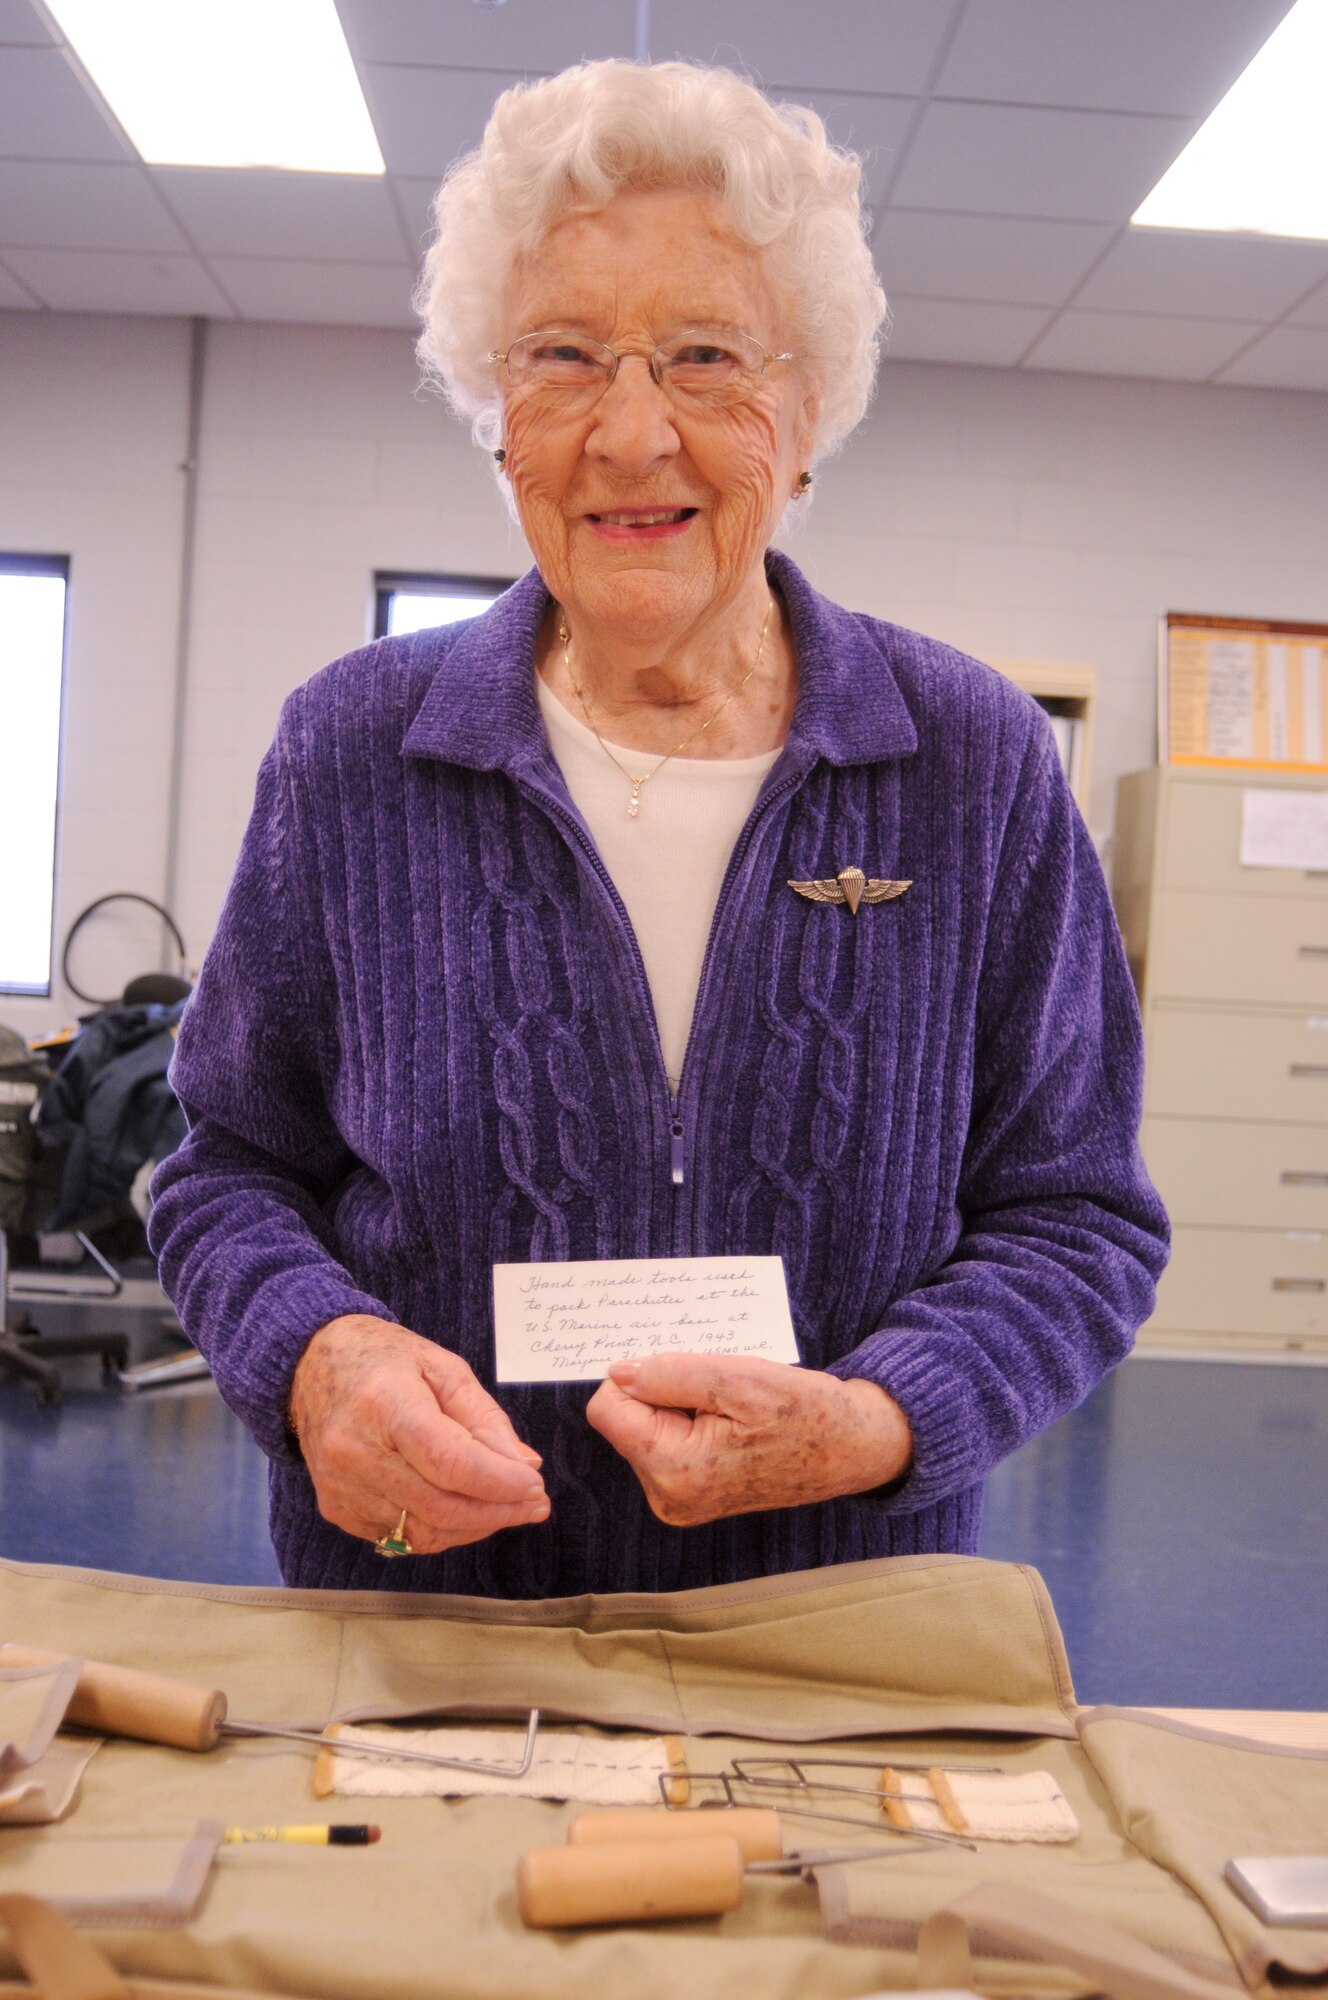 Hand made tools used
to pack Parachutes at the
U.S. Marine air base at
Cherry Point, N.C. 1943
Marjorie USMC W.R.